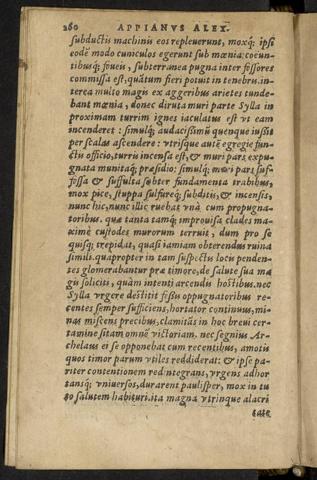 280 APPIANVS ALEX.
subductis machinis eos repleuerunt, moxq; ipsi
eodē modo cuniculos egerunt sub mœnia: coeun-
tibusq; foueis, subterranea pugna inter fossores
commissa est, quātum fieri potuit in tenebris. in-
terea multo magis ex aggeribus arietes tunde-
bant mœnia, donec diruta muri parte Sylla in
proximam turrim ignes iaculatus est vt eam
incenderet: simulq; audacissimū quenque iussit
per scalas ascendere: vtrisque autē egregie fun-
ctis officio, turris incensa est, & muri pars expu-
gnata munitaq; præsidio: simulq; muri pars suf-
fossa & suffulta subter fundamenta trabibus,
mox pice, stupa sulfureq; subditis, & incensis,
nunc hic, nunc illic ruebat vnà cum propugna-
toribus. quæ tanta tamq; improuisa clades ma-
ximè custodes murorum terruit, dum pro se
quisq; trepidat, quasi iamiam obterendus ruina
simili. quapropter in tam suspectis locis penden-
tes glomerabantur præ timore, de salute sua ma
gis soliciti, quàm intenti arcendis hostibus. nec
Sylla vrgere destitit fessis oppugnatoribus re-
centes semper sufficiens, hortator continuus, mi-
nas miscens precibus, clamitās in hoc breui cer-
tamine sitam omnē victoriam. nec segnius Ar-
chelaus ei se opponebat cum recentibus, amotis
quos timor parum vtiles reddiderat: & ipse pa-
riter contentionem redintegrans, vrgens adhor
tansq; vniuersos, durarent paulisper, mox in tu
to salutem habituri. ita magna vtrinque alacri
tate